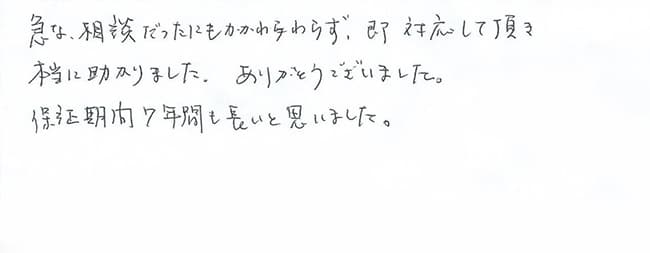 急な、相談だったにもかかわらわらず、即 対応して頂き
本当に助かりました。 ありがとうございました。
保証期間7年間も長いと思いました。